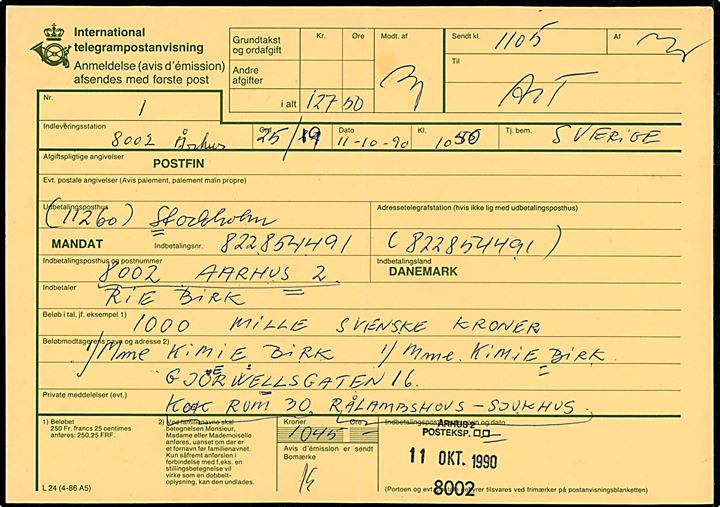 International
telegrampostanvisning
Anmeldelse (avis d'émission)
afsendes med første post
Grundtakst og ordafgift
Kr. Øre
Andre afgifter
i alt 127 50
Modt. af
Sendt kl. 1105
Af
Til
Nr. 1
Indleveringsstation 8002 Århus
25/19
Dato 11-10-90
Kl. 1050
Tj. bem. SVERIGE
Afgiftspligtige angivelser POSTFIN
Evt. postale angivelser (Avis paiement, paiement main propre)
Udbetalingsposthus (11260) Stockholm
Adressetelegrafstation (hvis ikke lig med udbetalingsposthus)
MANDAT Indbetalingsnr. 822854491 (822854491)
Indbetalingsposthus og postnummer 8002 AARHUS 2
Indbetalingsland DANEMARK
Indbetaler RIE BIRK
Beløb i tal, jf. eksempel 1) 1000 MILLE SVENSKE KRONER
Beløbmodtagerens navn og adresse 2)
1/ Mme KIMIE BIRK 1/ Mme. KIMIE BIRK.
GJÖRWELLSGATEN 16.
Private meddelelser (evt.)
RUM 30, RÅLAMBSHOVS-SJUKHUS.
1) Beløbet
250 Fr. francs 25 centimes
anføres: 250,25 FRF.
2) Ved familienavne skal
betegnelsen Monsieur,
Madame eller Mademoiselle
anføres, uanset om der er
et fornavn før familienavnet.
Kun såfremt anførslen i
forbindelse med f.eks. en
stillingsbetegnelse vil
virke som en dobbelt-
oplysning, kan den undlades.
Kroner Øre
1045 -
Avis d'émission er sendt
Bomærke
ÅRHUS 2
POSTEKSP.
11 OKT. 1990
8002
(Portoen og evt. tilsvares ved frimærker på postanvisningsblanketten)
L 24 (4-86 A5)